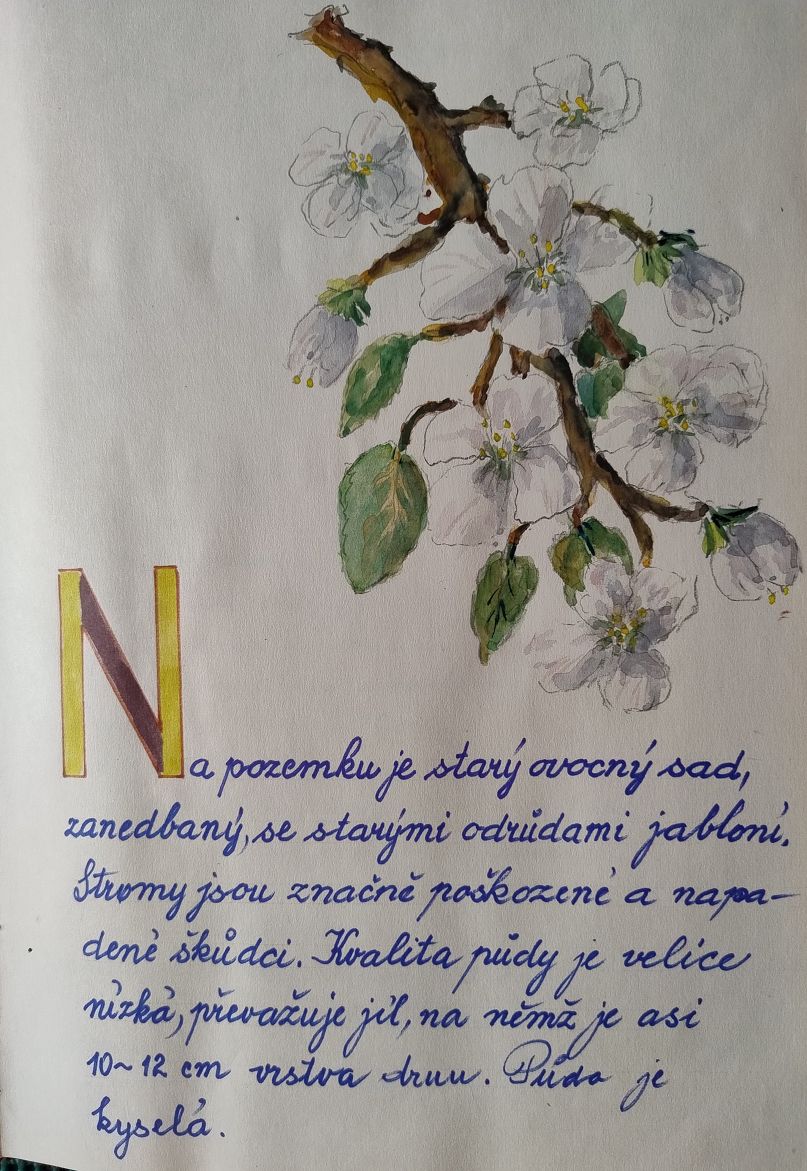 Na pozemku je starý ovocný sad,
zanedbaný, se starými odrůdami jabloní.
Stromy jsou značně poškozené a napa-
dené škůdci. Kvalita půdy je velice
nízká, převažuje jíl, na němž je asi
10~12 cm vrstva drnu. Půda je
kyselá.